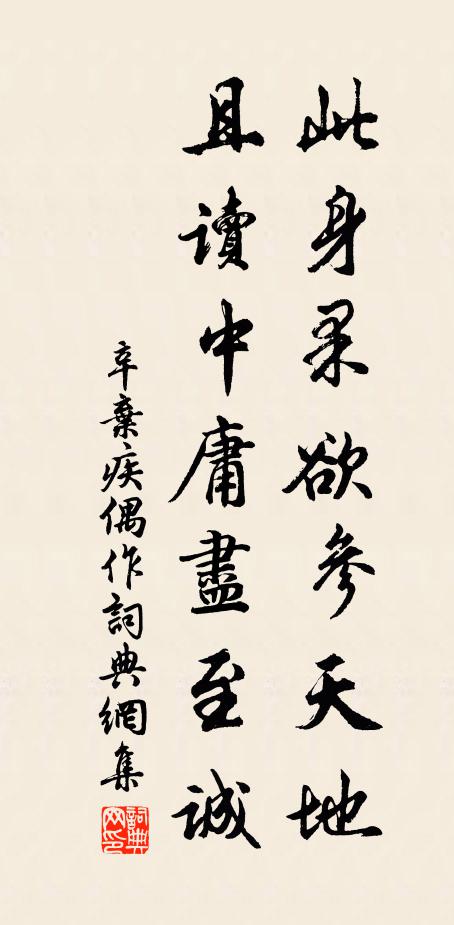 此身果欲參天地
且讀中庸盡至誠
辛棄疾偶作詞典網集
詞典網印